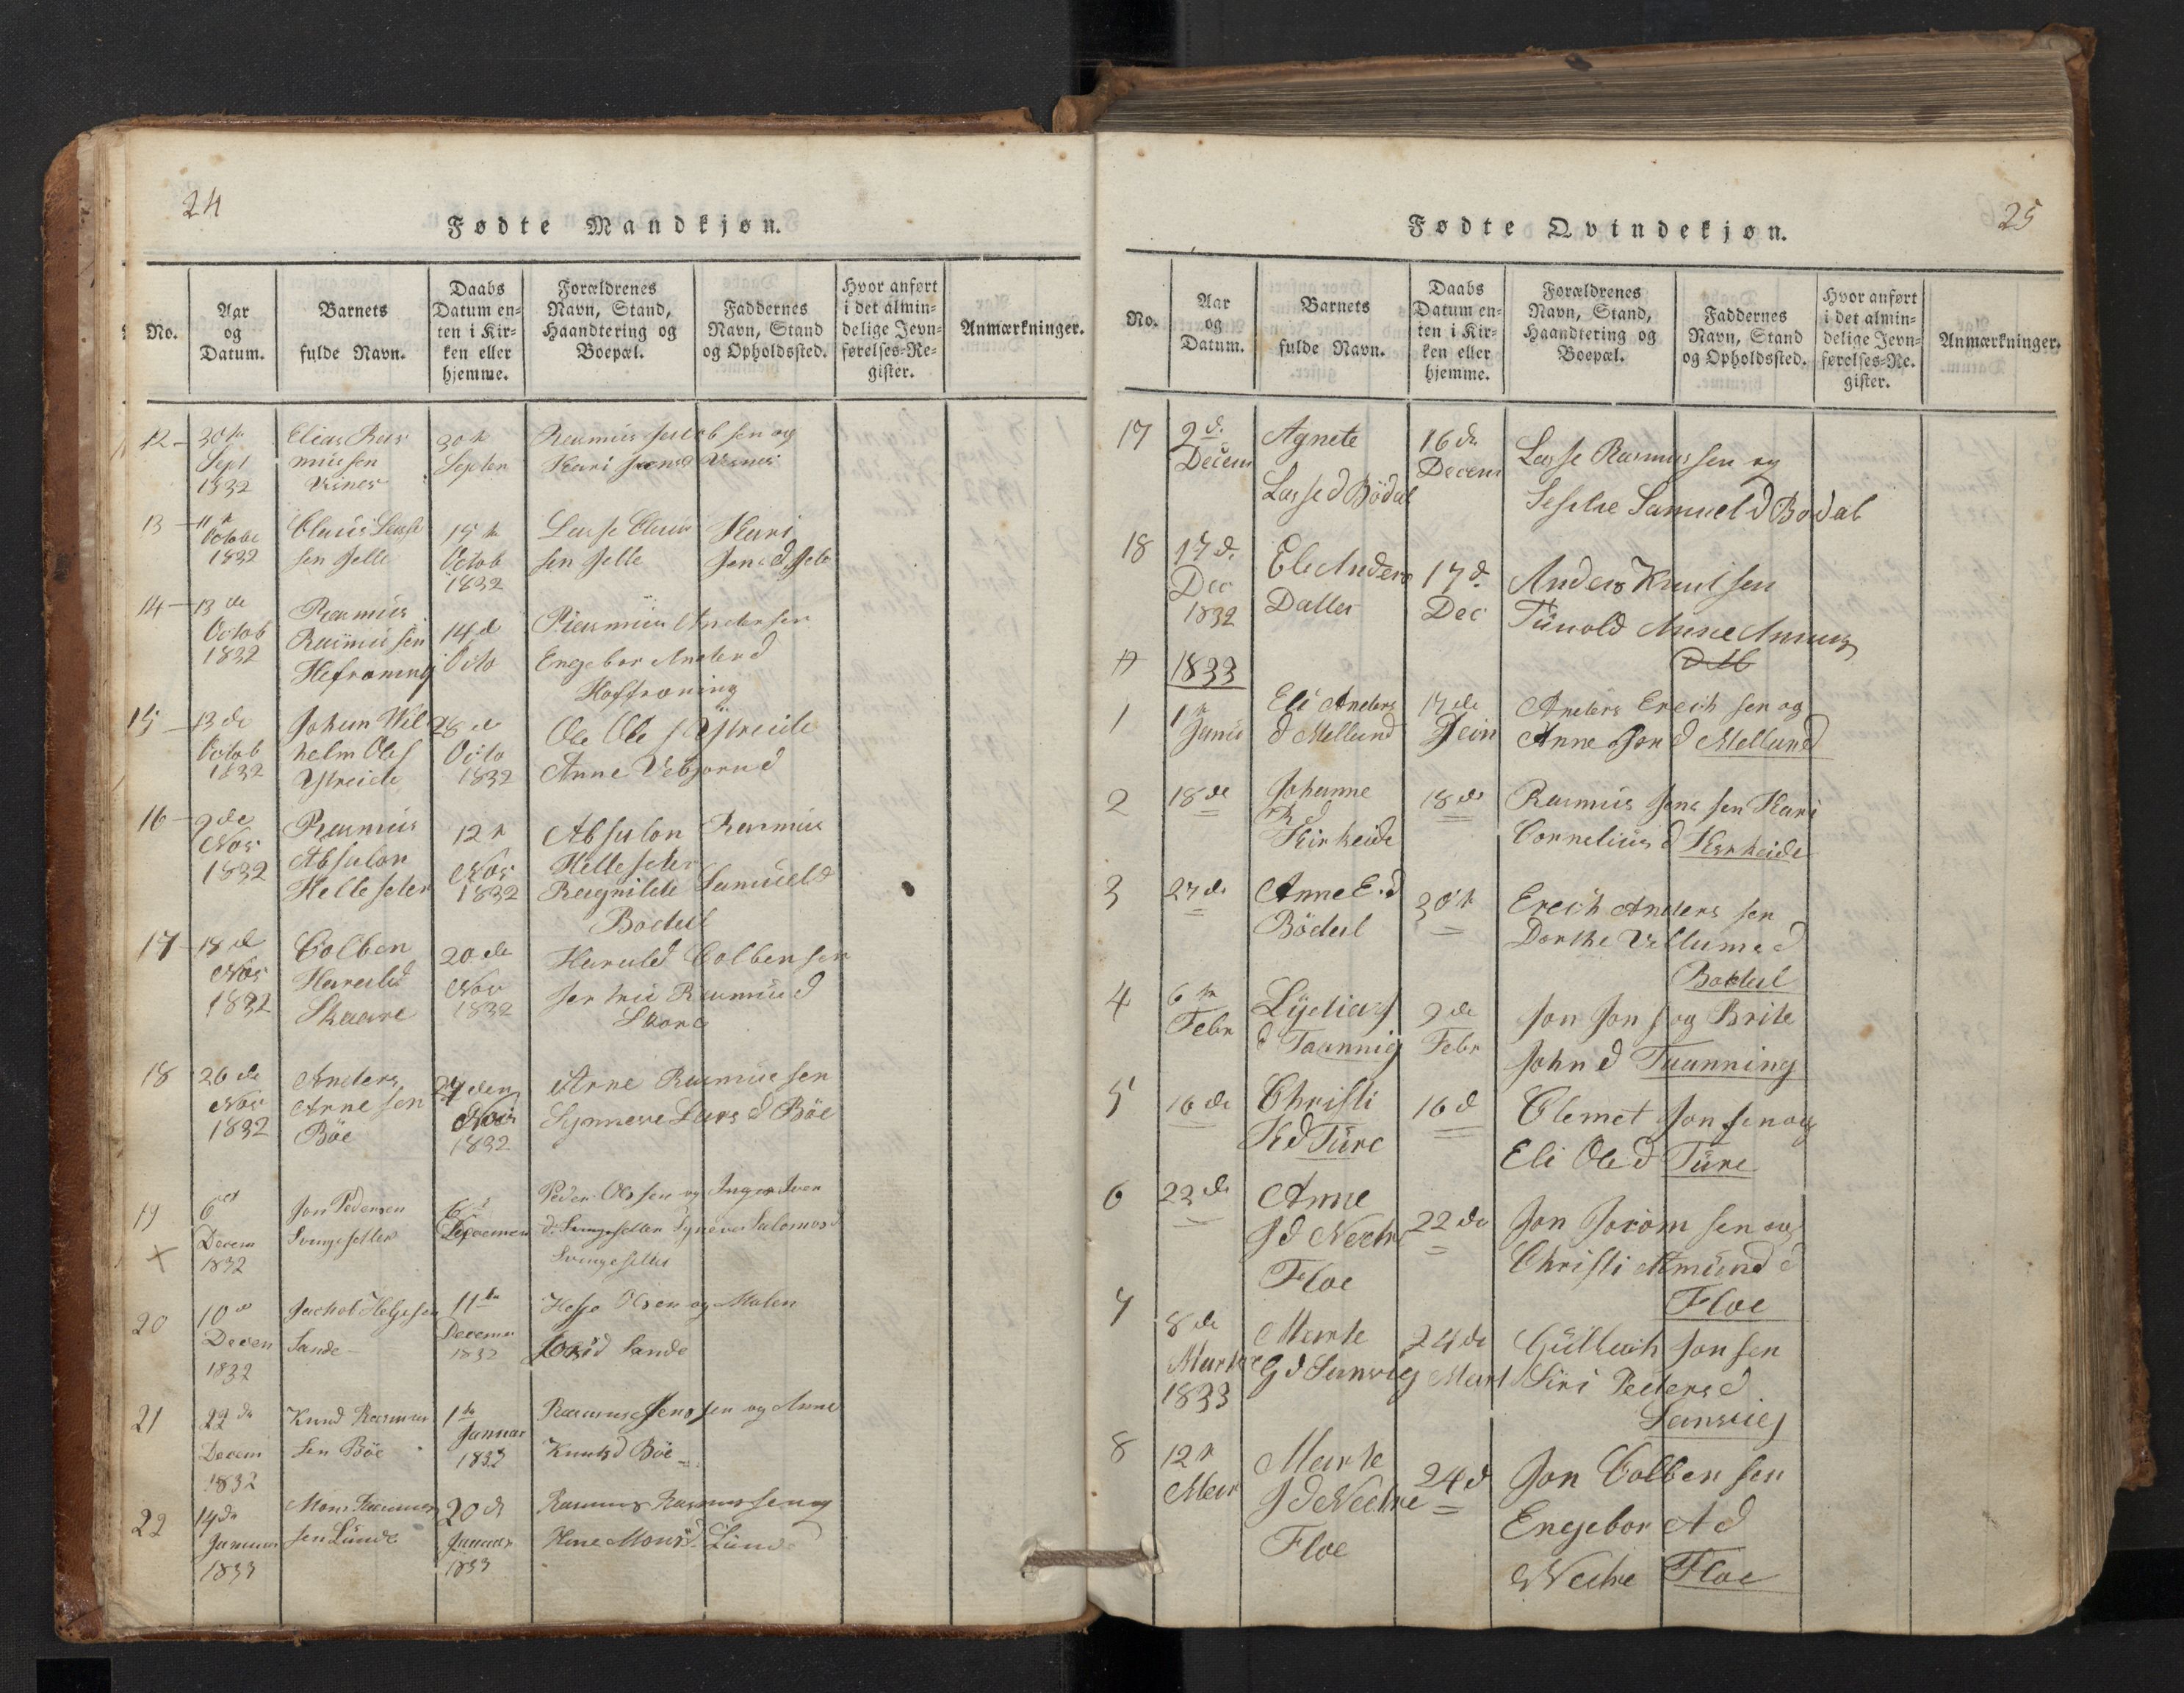 24
Fødte Mandkjøn.
No.
Aar
og
Datum.
Barnets
fulde Navn.
Daabs
Datum en-
ten i Kir-
ken eller
hjemme.
Forældrenes
Navn, Stand,
Haandtering og
Boepæl.
Faddernes
Navn, Stand
og Opholdssted.
Hvor anført
i det almin-
delige Jevn-
førelses-Re-
gister.
Anmærkninger.
12
30te
Sept
1832
Elias Ras
mussen
Visnes
30te
Septer
Rasmus Jacobsen og
Kari Jensd Visnes
13
11te
Octobe
1832
Claus Lasse
sen Jelle
15te
Octob
1832
Lasse Claus
sen Jelle
Kari
Jensd Jelle
14
13de
Octob
1832
Rasmus
Rasmussen
Hefroning
14d
Octo
Rasmus Andersen
Engebor Andersd
Hoffroning
15
13de
Octob
1832
Johan Wil
helm Oles
Ystreide
28de
Octo
1832
Ole Ole s Ystreide
Anne Vebjornd
16
9de
Nov
1832
Rasmus
Absalon
Helleseter
12te
Nov
1832
Absalon Rasmus
Hellseter
Ragnilde Samueld
Bødal
17
18de
Nov
1832
Colben
Harald
Skaare
20de
Nov
1832
Harald Colbensen
Rasmusd
Skare
18
26de
Nov
1832
Anders
Arnesen
Böe
27den
Nov
1832
Arne Rasmussen
Synneve Larsd Böe
19
6te
Decem
1832
Jon Pedersen
Svingesetter
6d
Decemer
Peder Olssen og Inger Iver
d. Svingesetter Synneve Salomosd
Svingesetter
20
10de
Decem
1832
Jachob Helgesen
Sande
11te
Decemer
1832
Olsen og Malen
Sande
21
22de
Decem
1832
Knud Rasmus
sen Böe
1te
Januar
1833
Rasmus Jenssen og Anne
Knudsd Böe
22
14de
Januar
1833
Mons Rasmus
sen Lunde
20de
Januar
1833
Rasmus Rasmussen og
Monsd. Lunde
25
Fødte Qvindekjøn.
No.
Aar
og
Datum.
Barnets
fulde Navn.
Daabs
Datum en-
ten i Kir-
ken eller
hjemme.
Forældrenes
Navn, Stand,
Haandtering og
Boepæl.
Faddernes
Navn, Stand
og Opholdssted.
Hvor anført
i det almin-
delige Jevn-
førelses-Re-
gister.
Anmærkninger.
17
2d.
Decem
Agnete
Lassed Bödal
16de
Decem
Lasse Rasmussen og
Sesselie Samueld Bødal
18
17d.
Dec
1832
Eli Anders
Datter
17d.
Dec
Anders Knutsen
Anne
1833
1
1te
Janu
Eli Anders
d Mellund
17de
Anders Erichsen og
Anne Jond Mellund
2
18de
Johanne
Rd
Kirkeide
18de
Rasmus Jenssen Kari
Corneliusd Kirkeide
3
27de
Anne E.d
Bödal
30te
Erich Anderssen
Dorthe Vellumsd
Bødal
4
6te
Febr
Lydia J
d Taanning
9de
Febr
Jon Jon s og Brite
Johnd Taanning
5
16de
Christi
Kd Ture
16d
Clemet Jonsen og
Eli Oled Ture
6
22de
Anne
Jd Nedre
Floe
22de
Jon Joramsen og
Christi Amundd
Floe
7
8de
Marti
1833
Marte
Gd Sunvig
24de
Mart
Gullach Jonsen
Siri Pedersd
Sanvig
8
12te
Mar
Marte
Jd Nedre
Floe
24d
Jon Colbensen
Engebor Ad
Nedre Floe